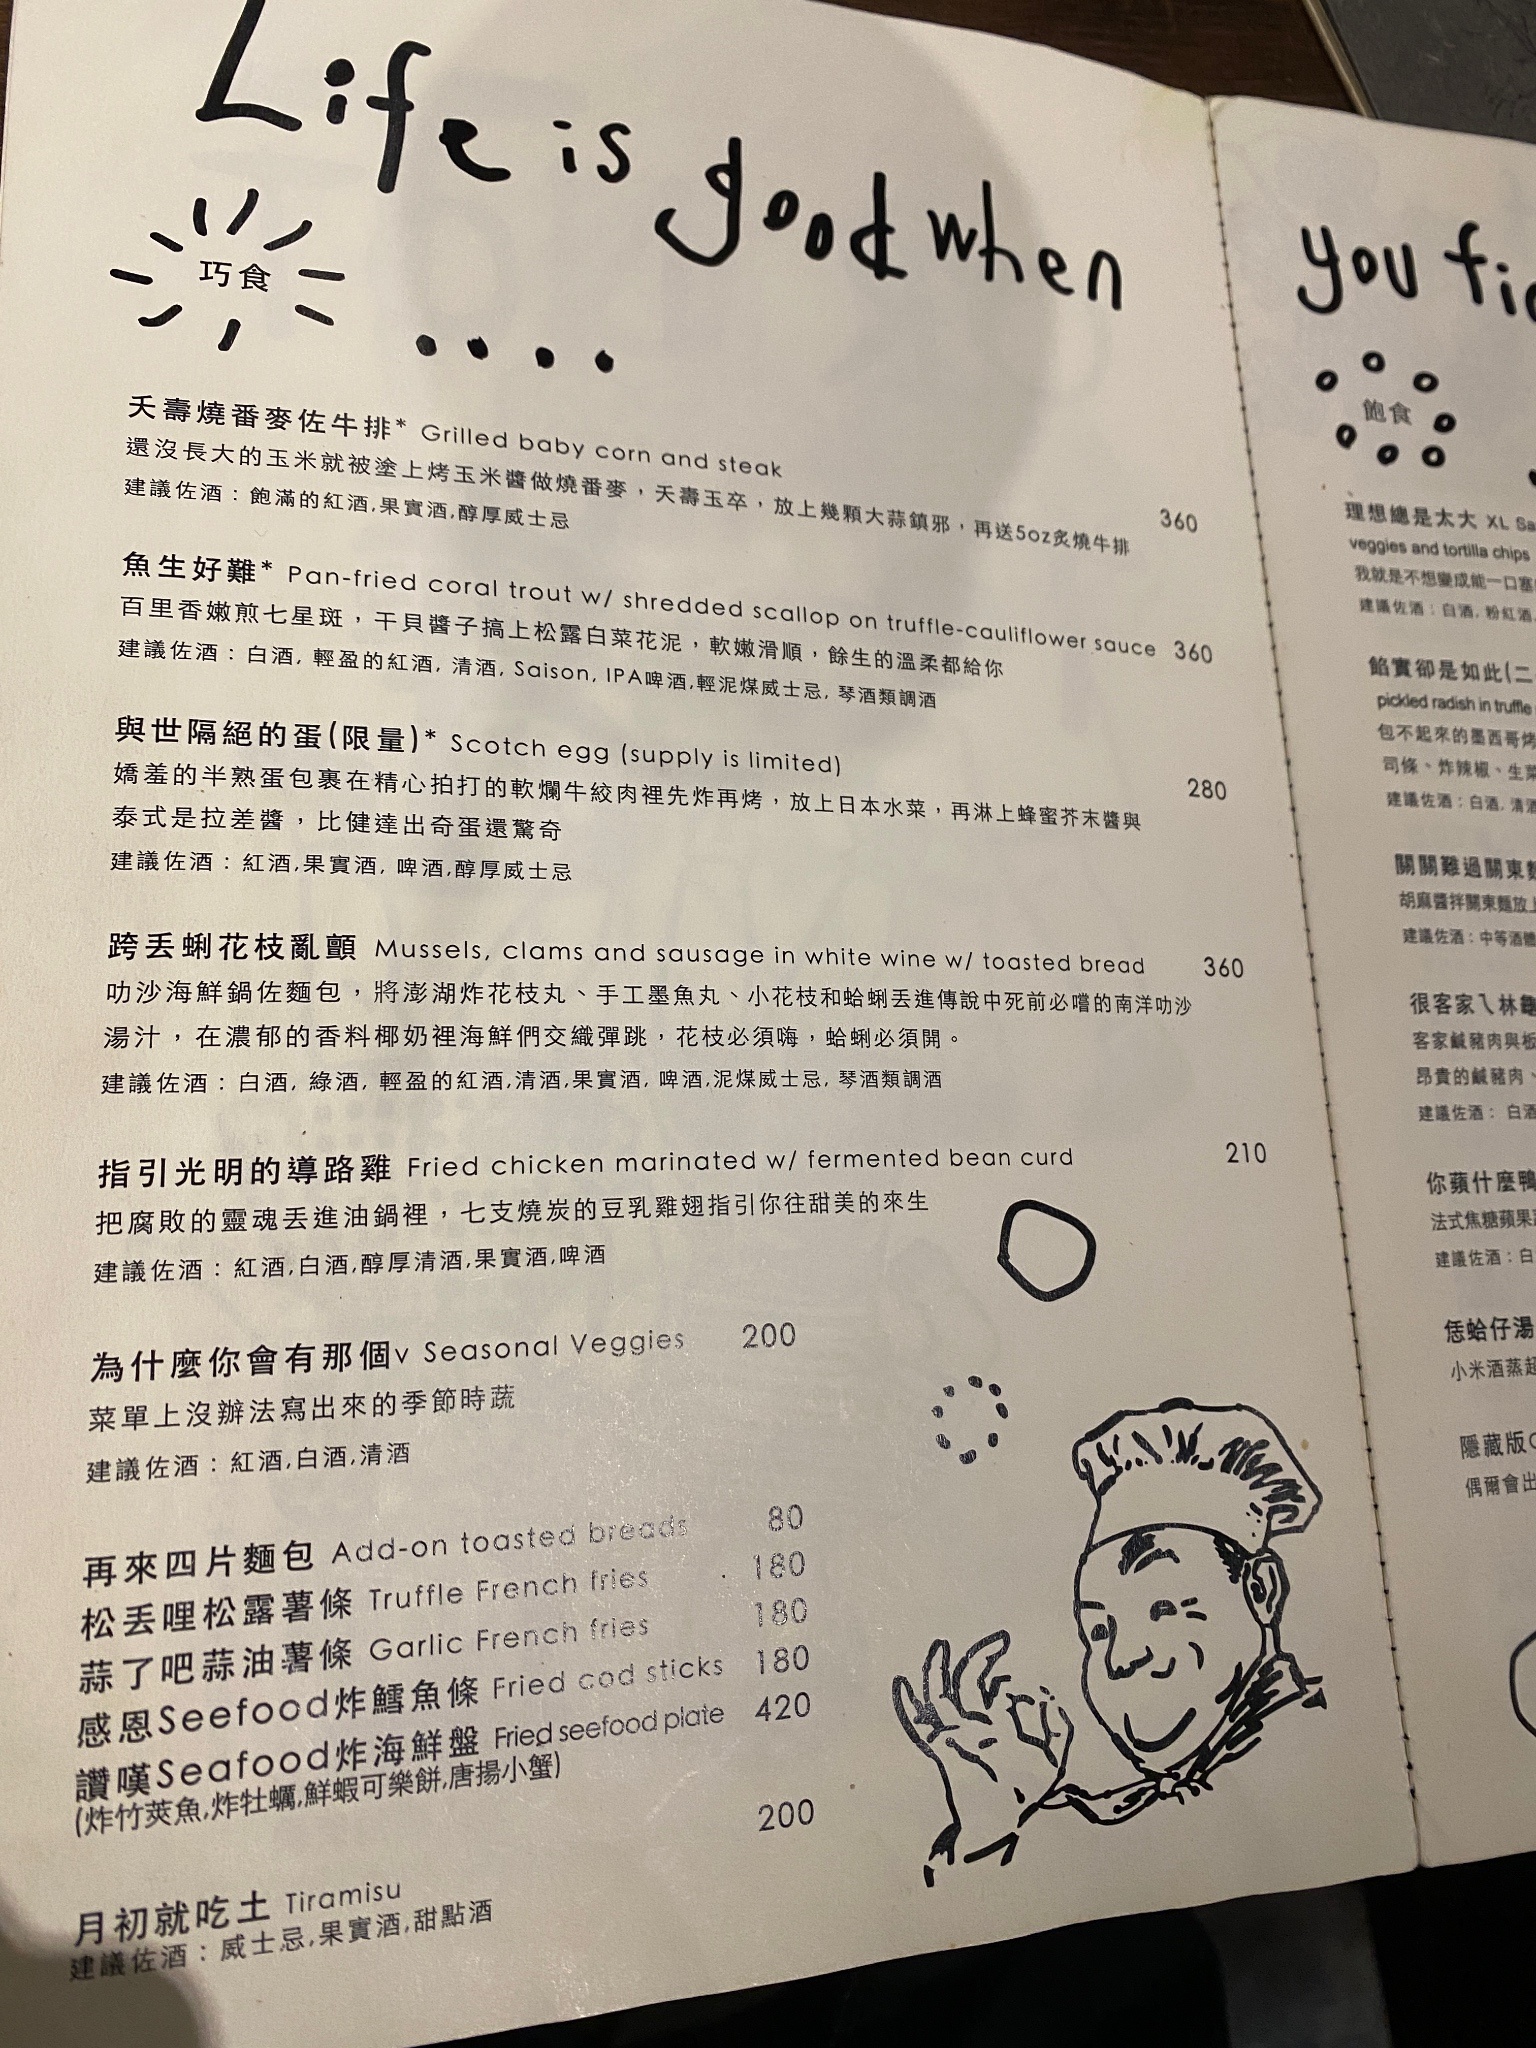 Life is good when
巧食
夭壽燒番麥佐牛排* Grilled baby corn and steak
還沒長大的玉米就被塗上烤玉米醬做燒番麥，夭壽玉卒，放上幾顆大蒜鎮邪，再送5oz炙燒牛排 360
建議佐酒：飽滿的紅酒,果實酒,醇厚威士忌
魚生好難* Pan-fried coral trout w/ shredded scallop on truffle-cauliflower sauce 360
百里香嫩煎七星斑，干貝醬子搞上松露白菜花泥，軟嫩滑順，餘生的溫柔都給你
建議佐酒：白酒, 輕盈的紅酒, 清酒, Saison, IPA啤酒,輕泥煤威士忌, 琴酒類調酒
與世隔絕的蛋(限量)* Scotch egg (supply is limited)
嬌羞的半熟蛋包裹在精心拍打的軟爛牛絞肉裡先炸再烤，放上日本水菜，再淋上蜂蜜芥末醬與 280
泰式是拉差醬，比健達出奇蛋還驚奇
建議佐酒：紅酒,果實酒, 啤酒,醇厚威士忌
跨丟蜊花枝亂顫 Mussels, clams and sausage in white wine w/ toasted bread 360
叻沙海鮮鍋佐麵包，將澎湖炸花枝丸、手工墨魚丸、小花枝和蛤蜊丟進傳說中死前必嚐的南洋叻沙
湯汁，在濃郁的香料椰奶裡海鮮們交織彈跳，花枝必須嗨，蛤蜊必須開。
建議佐酒：白酒, 綠酒, 輕盈的紅酒,清酒,果實酒, 啤酒,泥煤威士忌, 琴酒類調酒
指引光明的導路雞 Fried chicken marinated w/ fermented bean curd 210
把腐敗的靈魂丟進油鍋裡，七支燒炭的豆乳雞翅指引你往甜美的來生
建議佐酒：紅酒,白酒,醇厚清酒,果實酒,啤酒
為什麼你會有那個v Seasonal Veggies 200
菜單上沒辦法寫出來的季節時蔬
建議佐酒：紅酒,白酒,清酒
再來四片麵包 Add-on toasted breads 80
松丟哩松露薯條 Truffle French fries 180
蒜了吧蒜油薯條 Garlic French fries 180
感恩Seefood炸鱈魚條 Fried cod sticks 180
讚嘆Seafood炸海鮮盤 Fried seefood plate 420
(炸竹莢魚,炸牡蠣,鮮蝦可樂餅,唐揚小蟹)
200
月初就吃土 Tiramisu
建議佐酒：威士忌,果實酒,甜點酒
you
飽食
理想總是太大 XL
veggies and tortilla chips
我就是不想變成能一口塞
建議佐酒：白酒, 粉紅酒,
餡實卻是如此(二
pickled radish in truffle
包不起來的墨西哥烤
司條、炸辣椒、生菜
建議佐酒：白酒, 清酒
關關難過關東麵
胡麻醬拌關東麵放上
建議佐酒：中等酒體
很客家ㄟ林
客家鹹豬肉與板
昂貴的鹹豬肉、
建議佐酒： 白酒
你蘋什麼鴨
法式焦糖蘋果
建議佐酒：白
恁蛤仔湯
小米酒蒸
隱藏版
偶爾會出